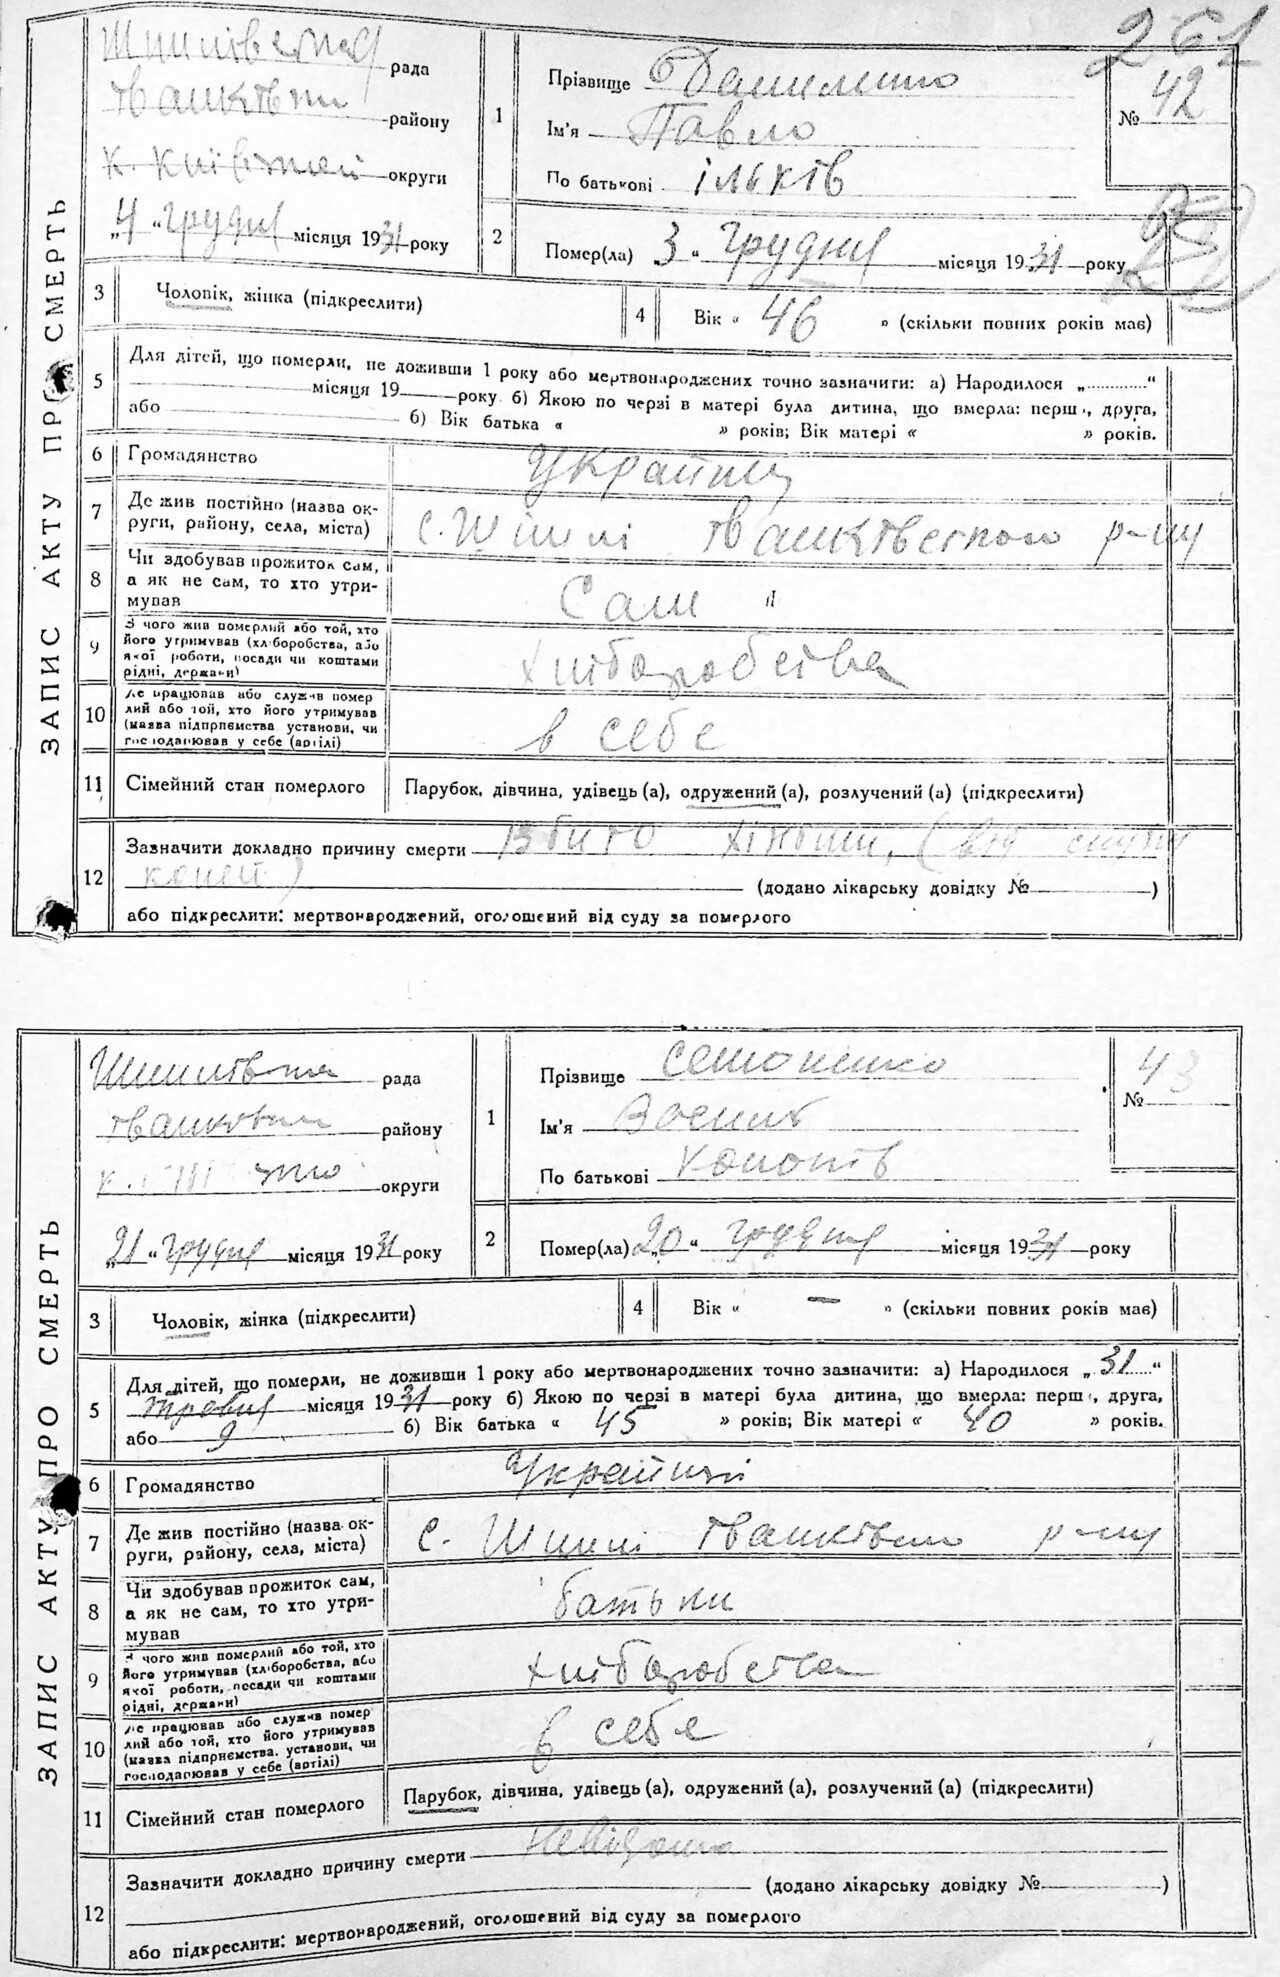 261
ЗАПИС АКТУ ПРО СМЕРТЬ
Шпилівська рада
Іванківськ району
к. Київській округи
„4 “ грудня місяця 1931 року
1
Прізвище Даниленко
Ім'я Павло
По батькові Ільків
№ 42
2
Помер(ла) 3 “ грудня місяця 1931 року
3 Чоловік, жінка (підкреслити)
4 Вік « 46 » (скільки повних років мав)
5 Для дітей, що померли, не доживши 1 року або мертвонароджених точно зазначити: а) Народилося „ “
місяця 19 року б) Якою по черзі в матері була дитина, що вмерла: перш , друга,
або б) Вік батька « » років; Вік матері « » років.
6 Громадянство Україн
7 Де жив постійно (назва ок-
руги, району, села, міста) с. Шпилі Іванківського р-ну
8 Чи здобував прожиток сам,
а як не сам, то хто утри-
мував Сам
9 З чого жив померлий або той, хто
його утримував (хліборобства, або
якої роботи, посади чи коштами
рідні, держави) хліборобства
10 Де працював або служив помер
лий або той, хто його утримував
(назва підприємства установи, чи
господарював у себе (артілі) в себе
11 Сімейний стан померлого Парубок, дівчина, удівець (а), одружений (а), розлучений (а) (підкреслити)
12 Зазначити докладно причину смерти Вбито кіньми, (від
коней) (додано лікарську довідку № )
або підкреслити: мертвонароджений, оголошений від суду за померлого
ЗАПИС АКТУ ПРО СМЕРТЬ
Шпилівська рада
Іванківськ району
округи
„21 “ грудня місяця 1931 року
1
Прізвище Семоненко
Ім'я Василь
По батькові Кононів
№ 43
2
Помер(ла) 20 “ грудня місяця 1931 року
3 Чоловік, жінка (підкреслити)
4 Вік « — » (скільки повних років мав)
5 Для дітей, що померли, не доживши 1 року або мертвонароджених точно зазначити: а) Народилося „ 31 “
травня місяця 1931 року б) Якою по черзі в матері була дитина, що вмерла: перш , друга,
або 9 б) Вік батька « 45 » років; Вік матері « 40 » років.
6 Громадянство Україн
7 Де жив постійно (назва ок-
руги, району, села, міста) с. Шпилі Іванківськ р-ну
8 Чи здобував прожиток сам,
а як не сам, то хто утри-
мував батьки
9 З чого жив померлий або той, хто
його утримував (хліборобства, або
якої роботи, посади чи коштами
рідні, держави) хліборобства
10 Де працював або служив помер
лий або той, хто його утримував
(назва підприємства, установи, чи
господарював у себе (артілі) в себе
11 Сімейний стан померлого Парубок, дівчина, удівець (а), одружений (а), розлучений (а) (підкреслити)
12 Зазначити докладно причину смерти невідомо
(додано лікарську довідку № )
або підкреслити: мертвонароджений, оголошений від суду за померлого